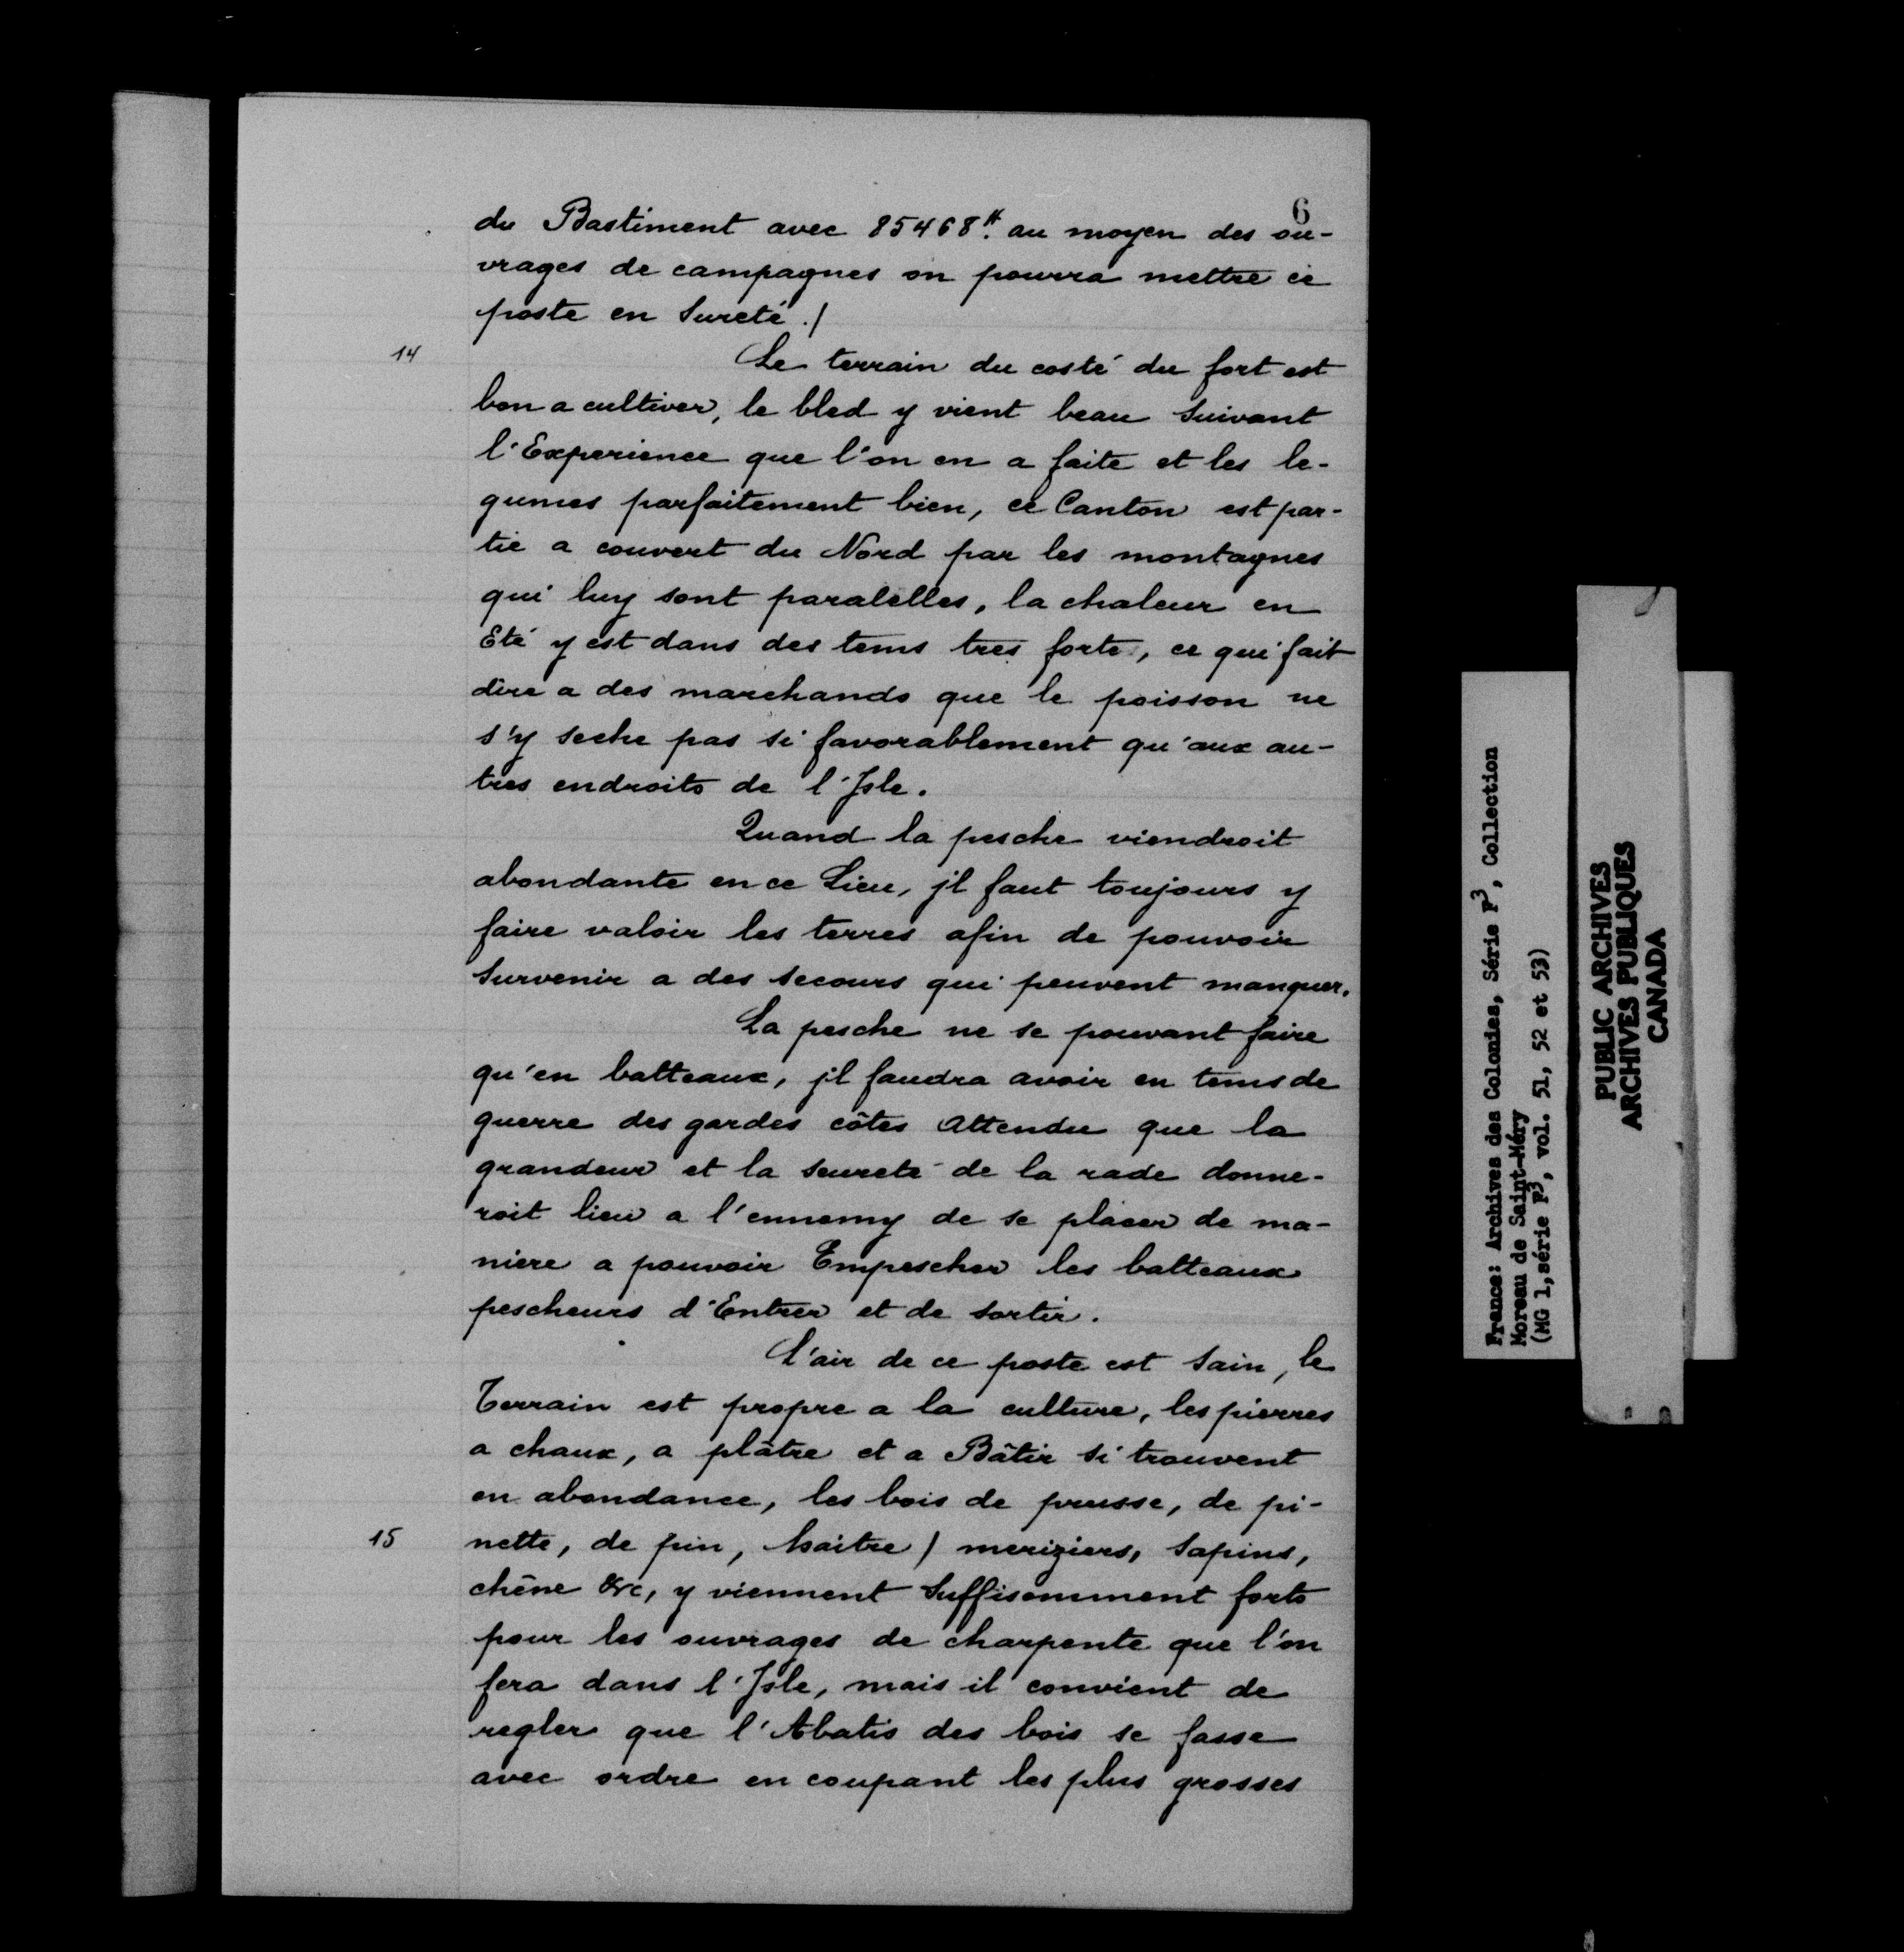 6
du Bastiment avec 85468# au moyen des ou-
vrages de campagnes on pourra mettre ce
poste en Sureté./
14
Le terrain du costé du fort est
bon a cultiver, le bled y vient beau Suivant
l'Experience que l'on en a faite et les le-
gumes parfaitement bien, ce Canton est par-
tie a couvert du Nord par les montagnes
qui luy sont paralelles, la chaleur en
Eté y est dans des tems tres forte, ce qui fait
dire a des marchands que le poisson ne
s'y seche pas si favorablement qu'aux au-
tres endroits de l'Isle.
Quand la pesche viendroit
abondante en ce Lieu, jl faut toujours y
faire valoir les terres afin de pouvoir
Survenir a des secours qui peuvent manquer.
La pesche ne se pouvant faire
qu'en batteaux, jl faudra avoir en tems de
guerre des gardes côtes Attendu que la
grandeur et la seureté de la rade donne-
roit lieu a l'ennemy de se placer de ma-
niere a pouvoir Empescher les batteaux
pescheurs d'Entrer et de sortir.
L'air de ce poste est Sain, le
Terrain est propre a la culture, les pierres
a chaux, a plâtre et a Bâtir si trouvent
en abondance, les bois de prusse, de pi-
15
nette, de pin, haitre / meriziers, Sapins,
chêne &c, y viennent Suffisomment forts
pour les ouvrages de charpente que l'on
fera dans l'Isle, mais il convient de
regler que l'Abatis des bois se fasse
avec ordre en coupant les plus grosses
France: Archives des Colonies, Série F3, Collection
Moreau de Saint-Méry
(MG 1, série F3, vol. 51, 52 et 53)
PUBLIC ARCHIVES
ARCHIVES PUBLIQUES
CANADA